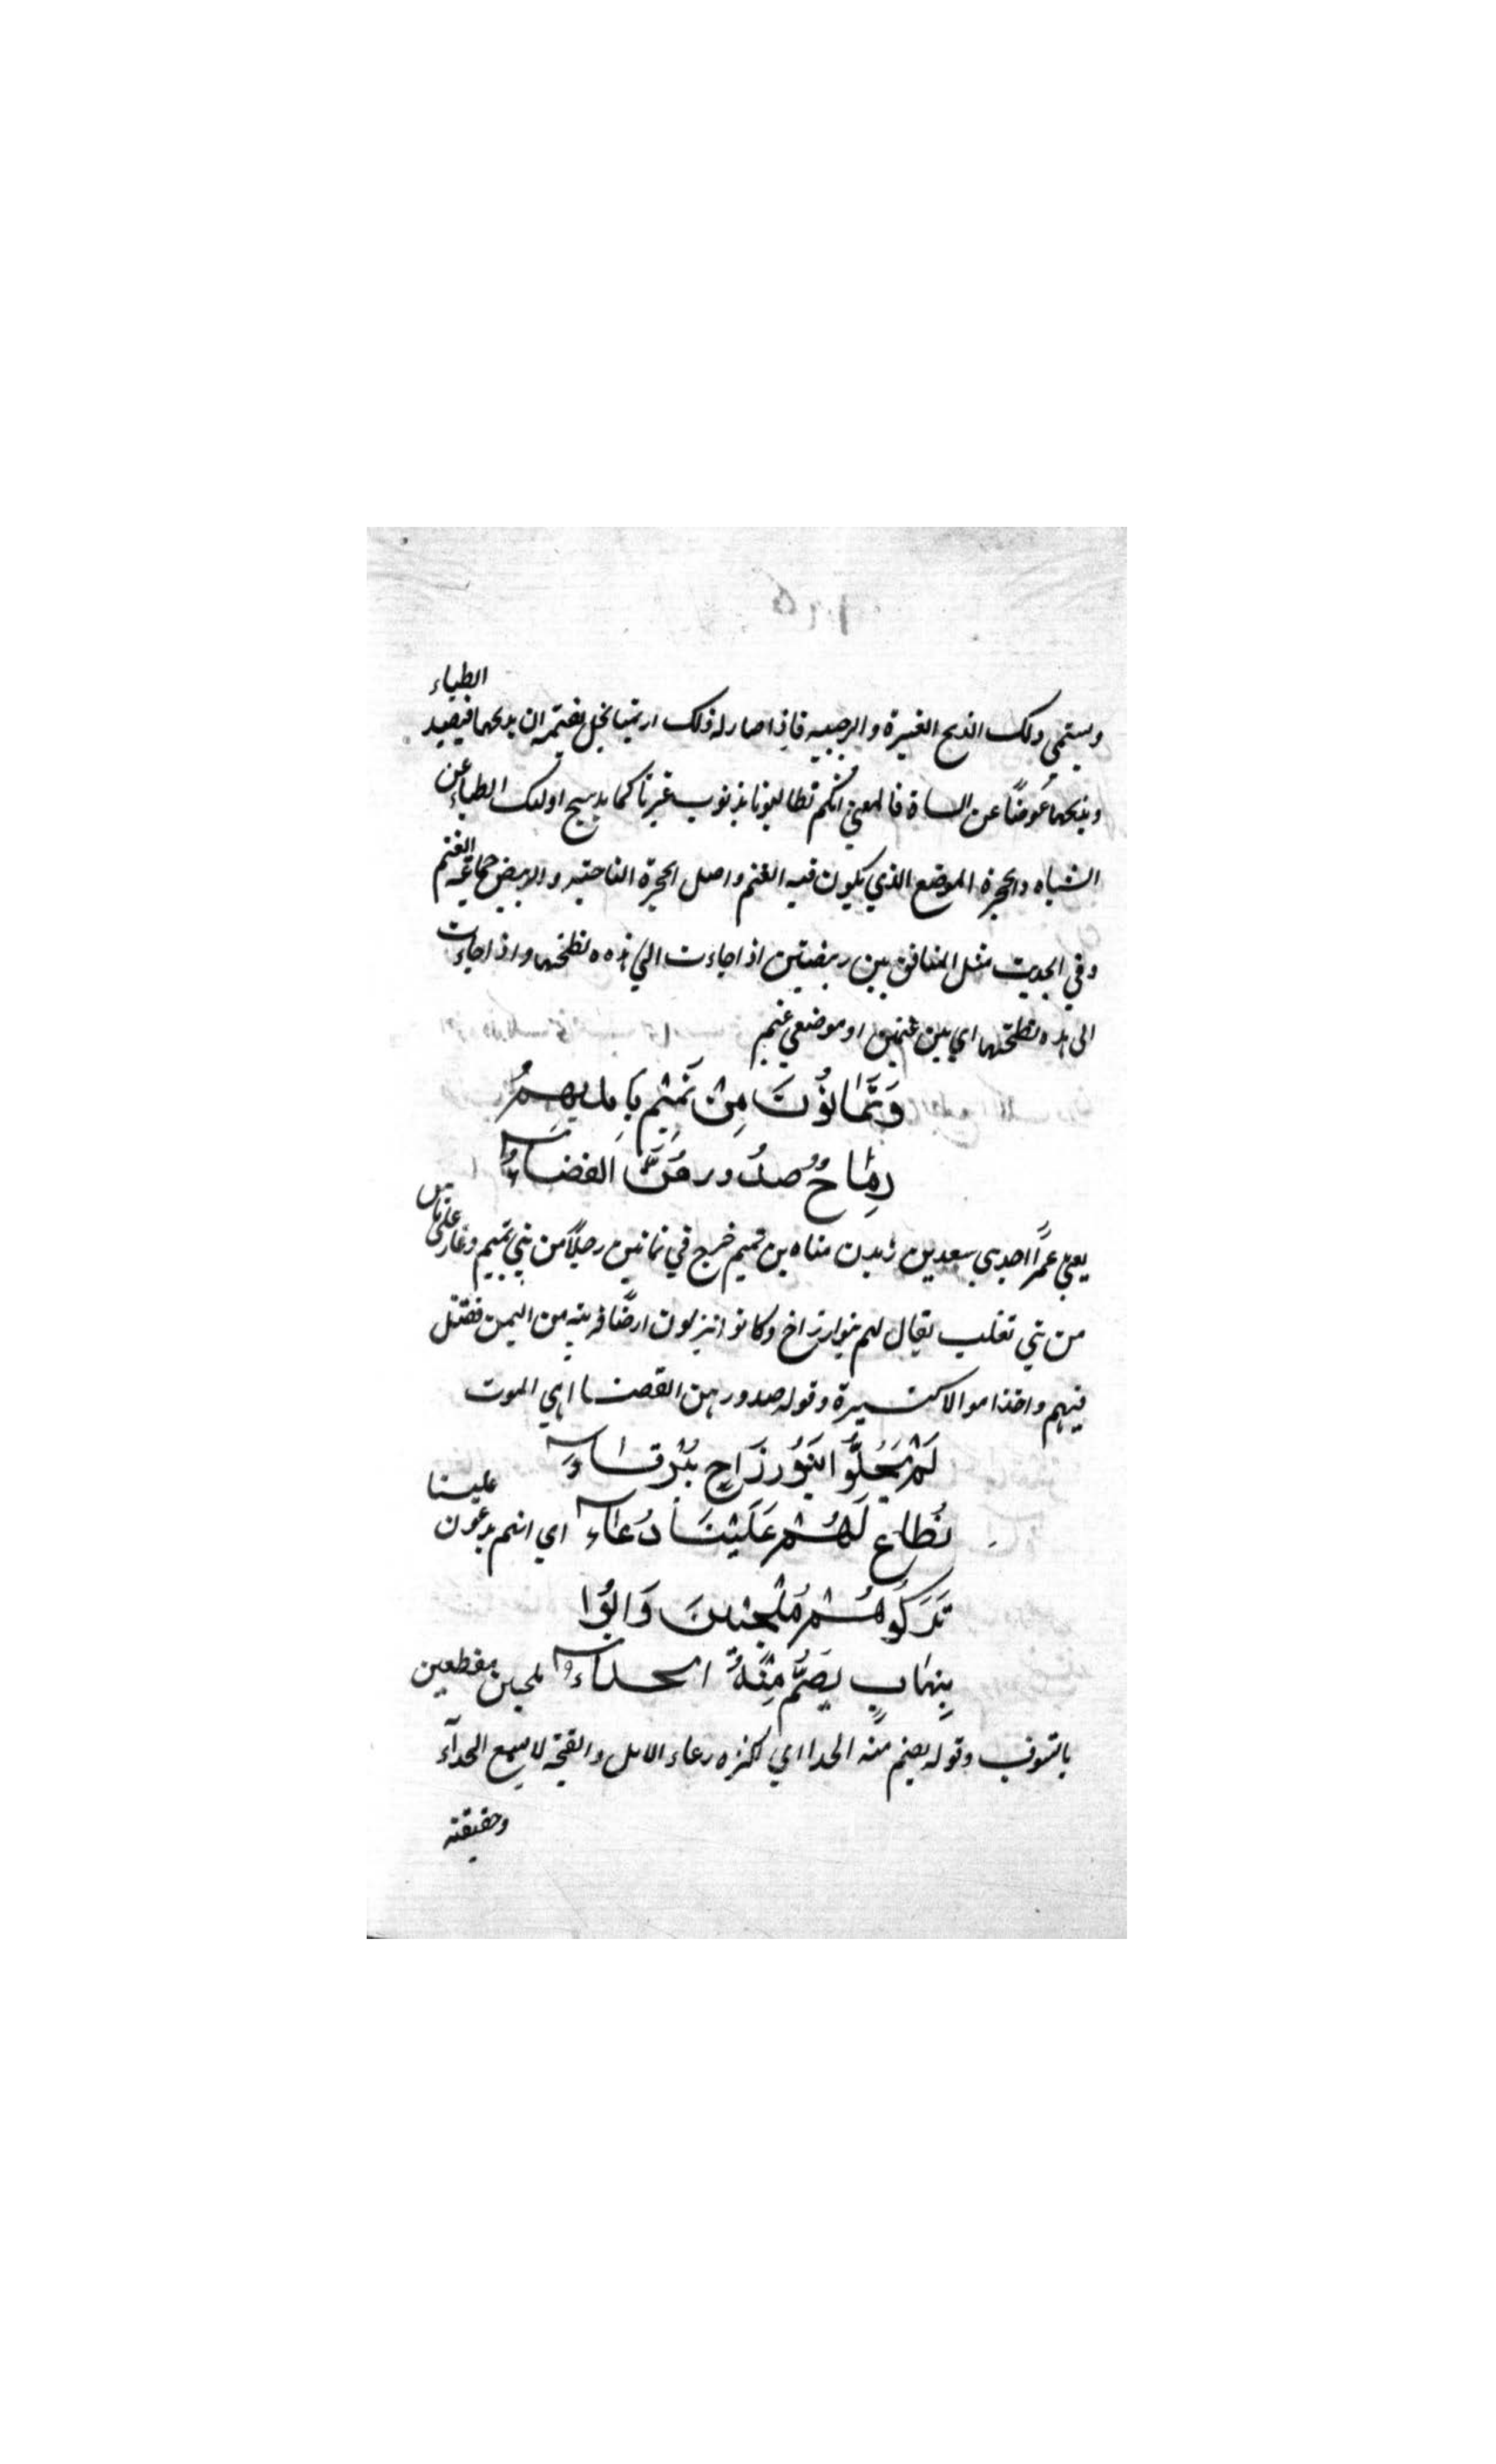 ويستمي ذلك الذبح العتيرة والرجبيه فاذا صار له ذلك ان يدبحها فيصيد الظباء
ويذبحها عوضًا عن الساة فالمعنى انكم تطالبونا بذنوب غيرنا كما يدبح اولئك الظباء عن
الشياه والحجرة الموضع الذي يكون فيه الغنم واصل الحجرة الناحية والربيض جماعة الغنم
وفي الحديث مثل المنافق بين ربيضتين اذا جاءت الي هذه نطحتها واذا جاءت
الى هذه نطحتها اي بين غنمين او موضعي غنم
وَثَمَانُوْنَ مِنْ تَمِيْمٍ بِاَيْدِيهِمْ
رِمَاحٌ صُدُورهُنَّ القضاءُ
يعني عمرًا احد بني سعد بن زيد بن مناه بن تميم خرج في ثمانين رجلًا من بني تميم وغار على ناس
من بني تغلب يقال لهم بنوا رزاخ وكانوا ينزلون ارضًا قريبه من اليمن فقتل
فيهم واخذ اموالا كثيرة وقوله صدورهن القضا اي الموت
لَمْ يُحِلُّوا بَنِيْ رزَاحٍ بِبُرْقَاءِ
نُطَاعٍ لَهُمْ عَلَيْنَا دُعَاء اي انهم يدعون علينا
تَرَكُوهُمْ مُلْحَبِيْنَ وَابُوْا
بِنِهَابٍ يَصُمُّ مِنْهُ الحداءُ ملحبين مقطعين
بالسوف وقوله يصم منه الحدا اي لكثره رعاء الابل والضجة لا يسمع الحدآء
وحقيقته